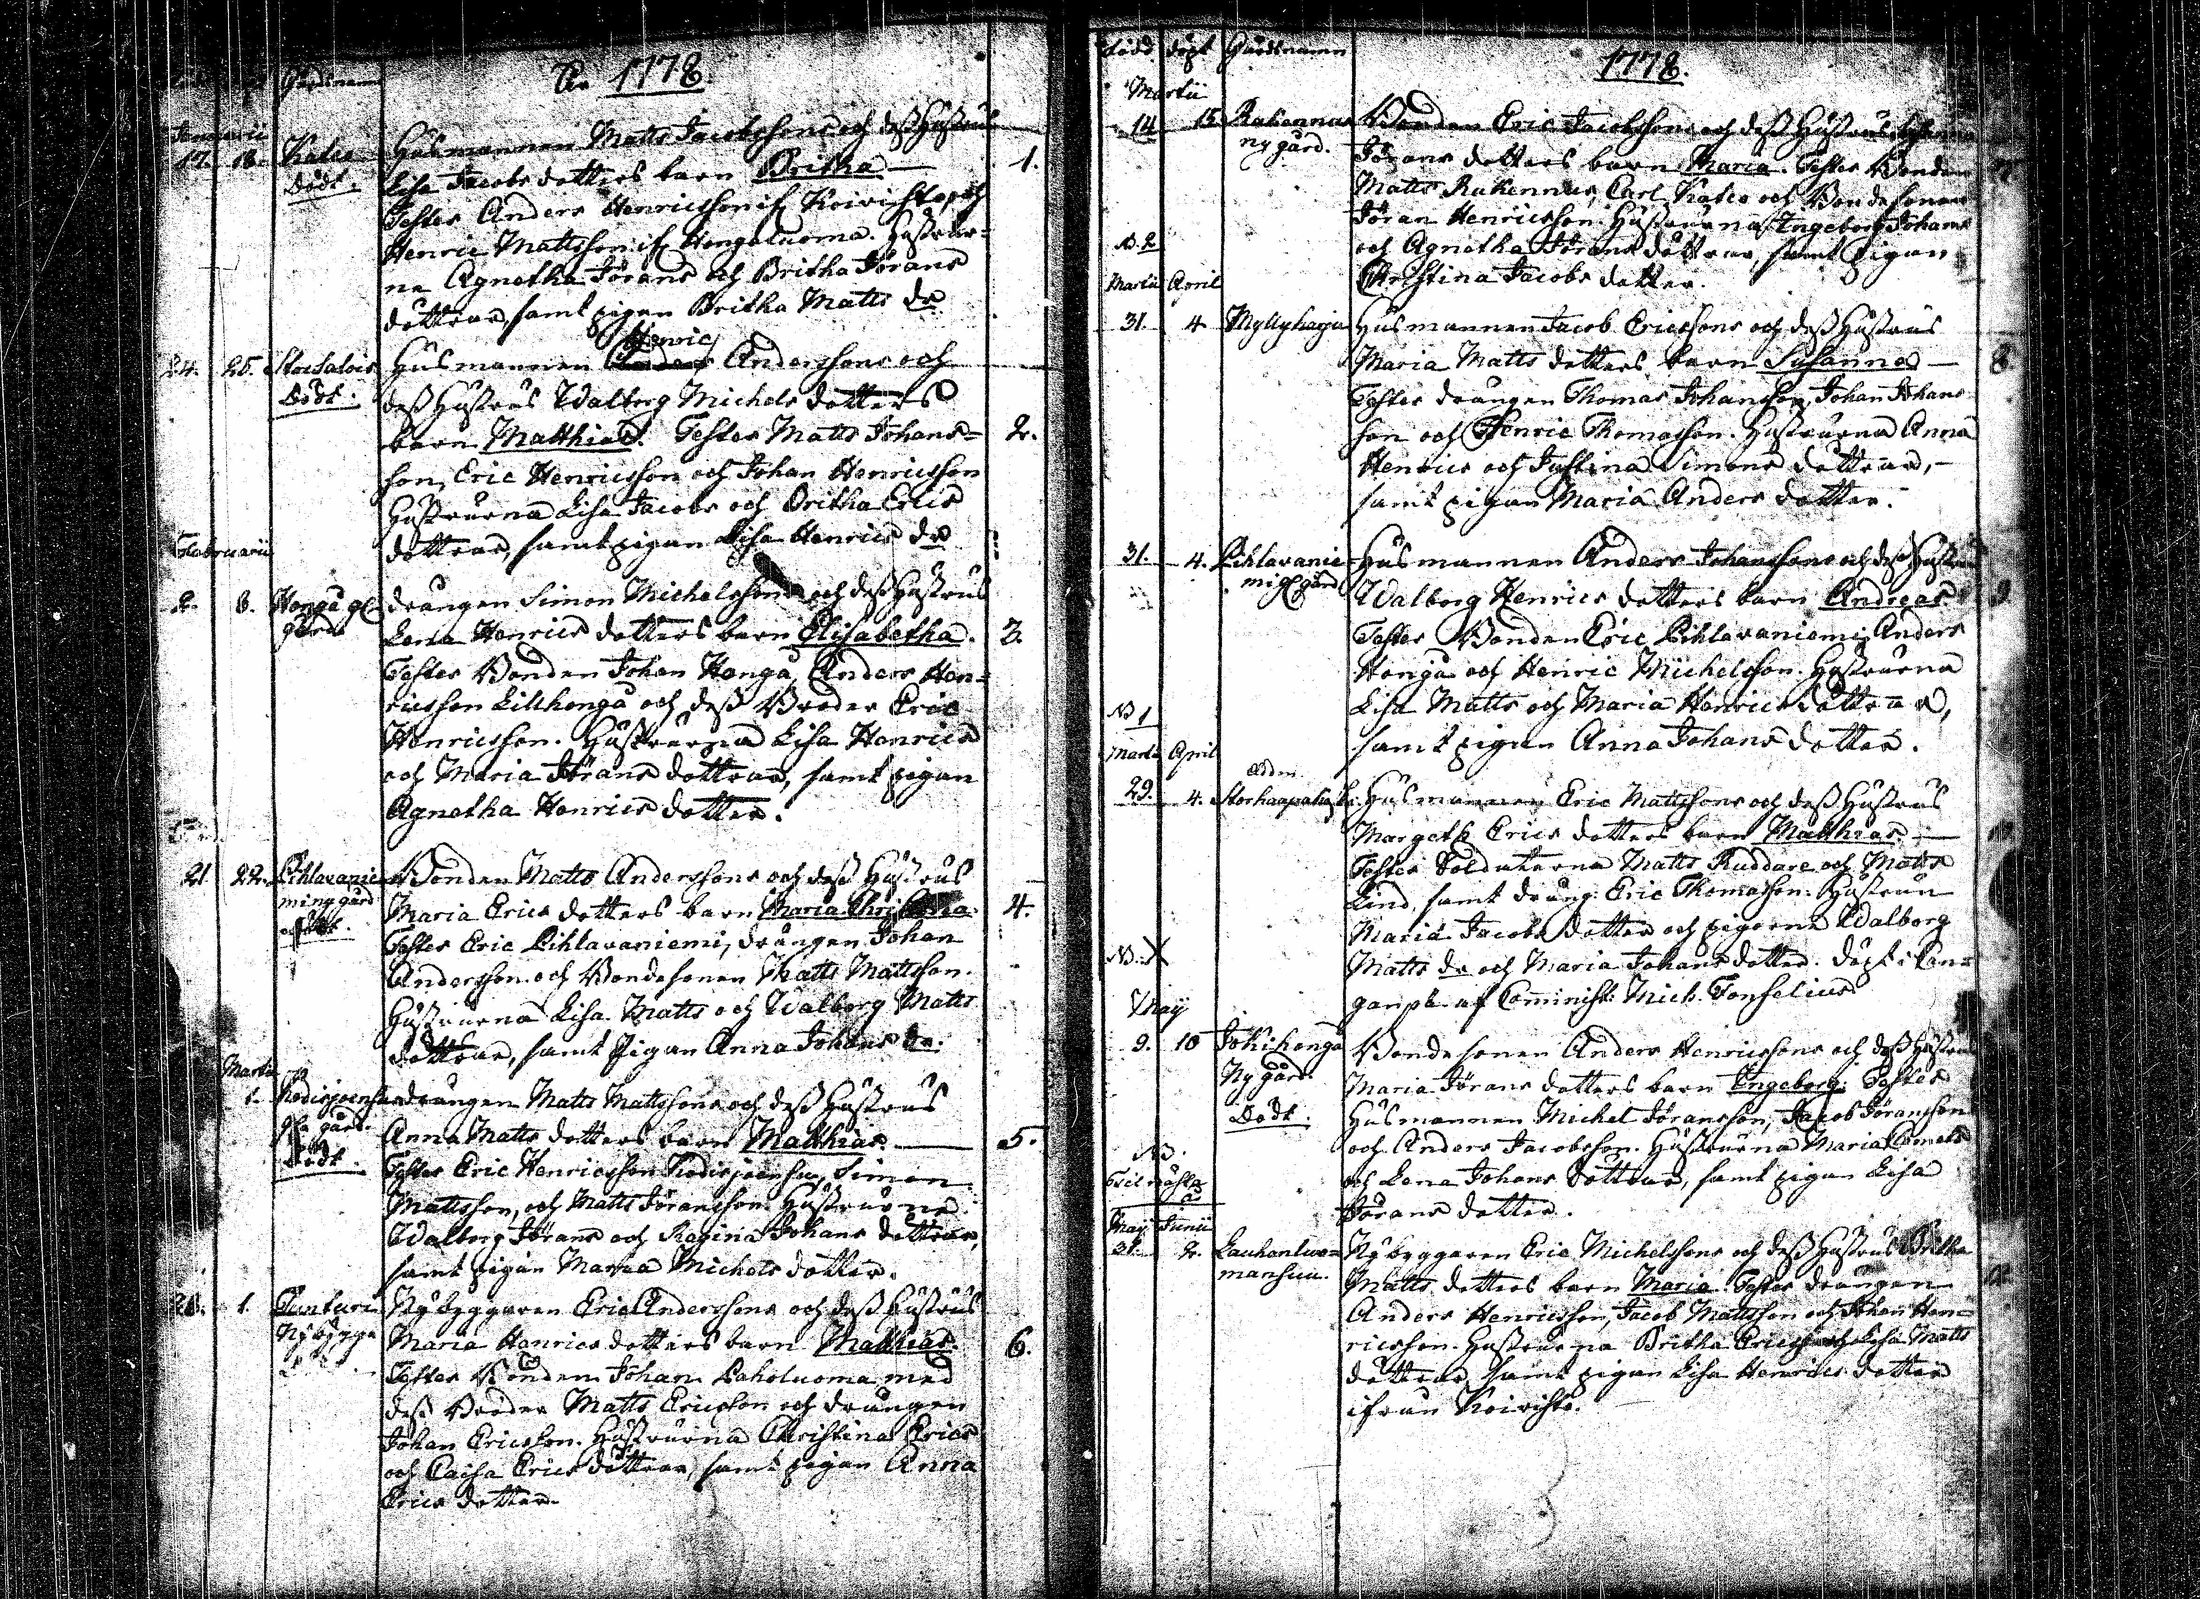 Gårdsnam
Ao 1778.
Januarii
17. 18. Katco
Dödt.
Husmannen Matts Jacobssons och dess Hustrus
Lisa Jacobs dotters barn Britha — 1.
Testes Anders Henricsson if. Koivisto, och
Henric Mattsson if. Hongoluoma. Hustrur=
na Agnetha Jörans och Britha Jörans
döttrar, samt pigan Britha Matts dr
24. 25. Dödt.
Henric
Husmannen Anderssons och
dess Hustrus Walborg Michels dotters
barn Matthias. Testes Matts Johans= 2.
son, Eric Henricsson och Johan Henricsson
Hustrurna Lisa Jacobs och Britha Erics
döttrar, samt pigan Lisa Henrics dr
Februarii
2. 8. Honga gl
gård
drängen Simon Michelssons och dess Hustrus
Lena Henrics dotters barn Elisabetha. 3.
Testes Bonden Johan Honga, Anders Hen=
ricsson Lillhonga och dess Broder Eric
Henricsson. Hustrurna Lisa Henrics
och Maria Jörans döttrar, samt pigan
Agnetha Henrics dotter.
21 22. Pihlavanie
mi ny gård
Bonden Matts Anderssons och dess Hustrus
Maria Erics dotters barn Maria Christina. 4.
Testes Eric Pihlavaniemi, drängen Johan
Andersson och Bondesonen Matts Mattsson.
Hustrurna Lisa Matts och Walborg Matts
döttrar, samt Pigan Anna Johans dr.
Martii
1. Kodisjoensu
gla gård.
Dödt.
drängen Matts Mattssons och dess Hustrus
Anna Matts dotters barn Matthias — 5.
Testes Eric Henricsson Kodisjoensu, Simon
Mattsson, och Matts Jöransson. Hustrurna
Walborg Jörans och Regina Johans döttrar,
samt pigan Maria Michels dotter.
1. Tunturi
Nybygge
Nybyggaren Eric Anderssons och dess Hustrus
Maria Henrics dotters barn Matthias. 6.
Testes Bonden Johan Paholuoma med
dess Broder Matts Ericsson och drängen
Johan Ericsson. Hustrurna Christina Erics
och Caisa Erics döttrar, samt pigan Anna
Erics dotter.
Född döpt Gårdsnamn
1778.
Martii
14 15 Rakennus
ny gård.
Bonden Eric Jacobssons och dess Hustrus
Jörans dotters barn Maria. Testes Bonden 7
Matts Rakennus, Carl Katco och Bondesonen
Jöran Henricsson. Hustrurna Ingeborg Johans
N. 2
och Agnetha Jörans döttrar, samt Pigan
Christina Jacobs dotter.
Martii April
31. 4 Myllyharju
Husmannen Jacob Ericssons och dess Hustrus
Maria Matts dotters barn Susanna — 8.
Testes drängen Thomas Johansson, Johan Johans
son och Henric Thomasson. Hustrurna Anna
Henrics och Justina Simons döttrar, —
samt pigan Maria Anders dotter.
31. 4. Pihlavanie
mi gl gård
Husmannen Anders Johanssons och dess Hustrus
Walborg Henrics dotters barn Andreas. 9.
Testes Bonden Eric Pihlavaniemi, Anders
Honga och Henric Michelsson. Hustrurna
N 1
Lisa Matts och Maria Henrics döttrar,
samt pigan Anna Johans dotter.
Martii April
29. 4. Storhaapa
Husmannen Eric Mattssons och dess Hustrus
Margeth Erics dotters barn Matthias — 10.
Testes Soldaterna Matts Ruddare och Matts
Lind, samt dräng: Eric Thomasson. Hustrun
Maria Jacobs dotter och pigorne Walborg
N. X
Matts dr och Maria Johans dotter. Döpt i Kan=
ganpä af Comminist: Mich. Tonselius
May
9. 10 Jokihonga
Ny gård.
Dödt.
Bondesonen Anders Henricssons och dess Hustrus
Maria Jörans dotters barn Ingeborg. Testes
Husmannen Michel Jöransson, Jacob Jöransson
och Anders Jacobsson. Hustrurna Maria
och Lena Johans döttrar, samt pigan Lisa
Jörans dotter.
May Junii
31. 2. Lauhanluo=
mansuu.
Nybyggaren Eric Michelssons och dess Hustrus Britha
Matts dotters barn Maria. Testes drängen 12
Anders Henricsson, Jacob Mattsson och Johan Hen=
ricsson. Hustrurna Britha Erics och Lisa Matts
döttrar, samt pigan Lisa Henrics dotter
ifrån Koivisto.